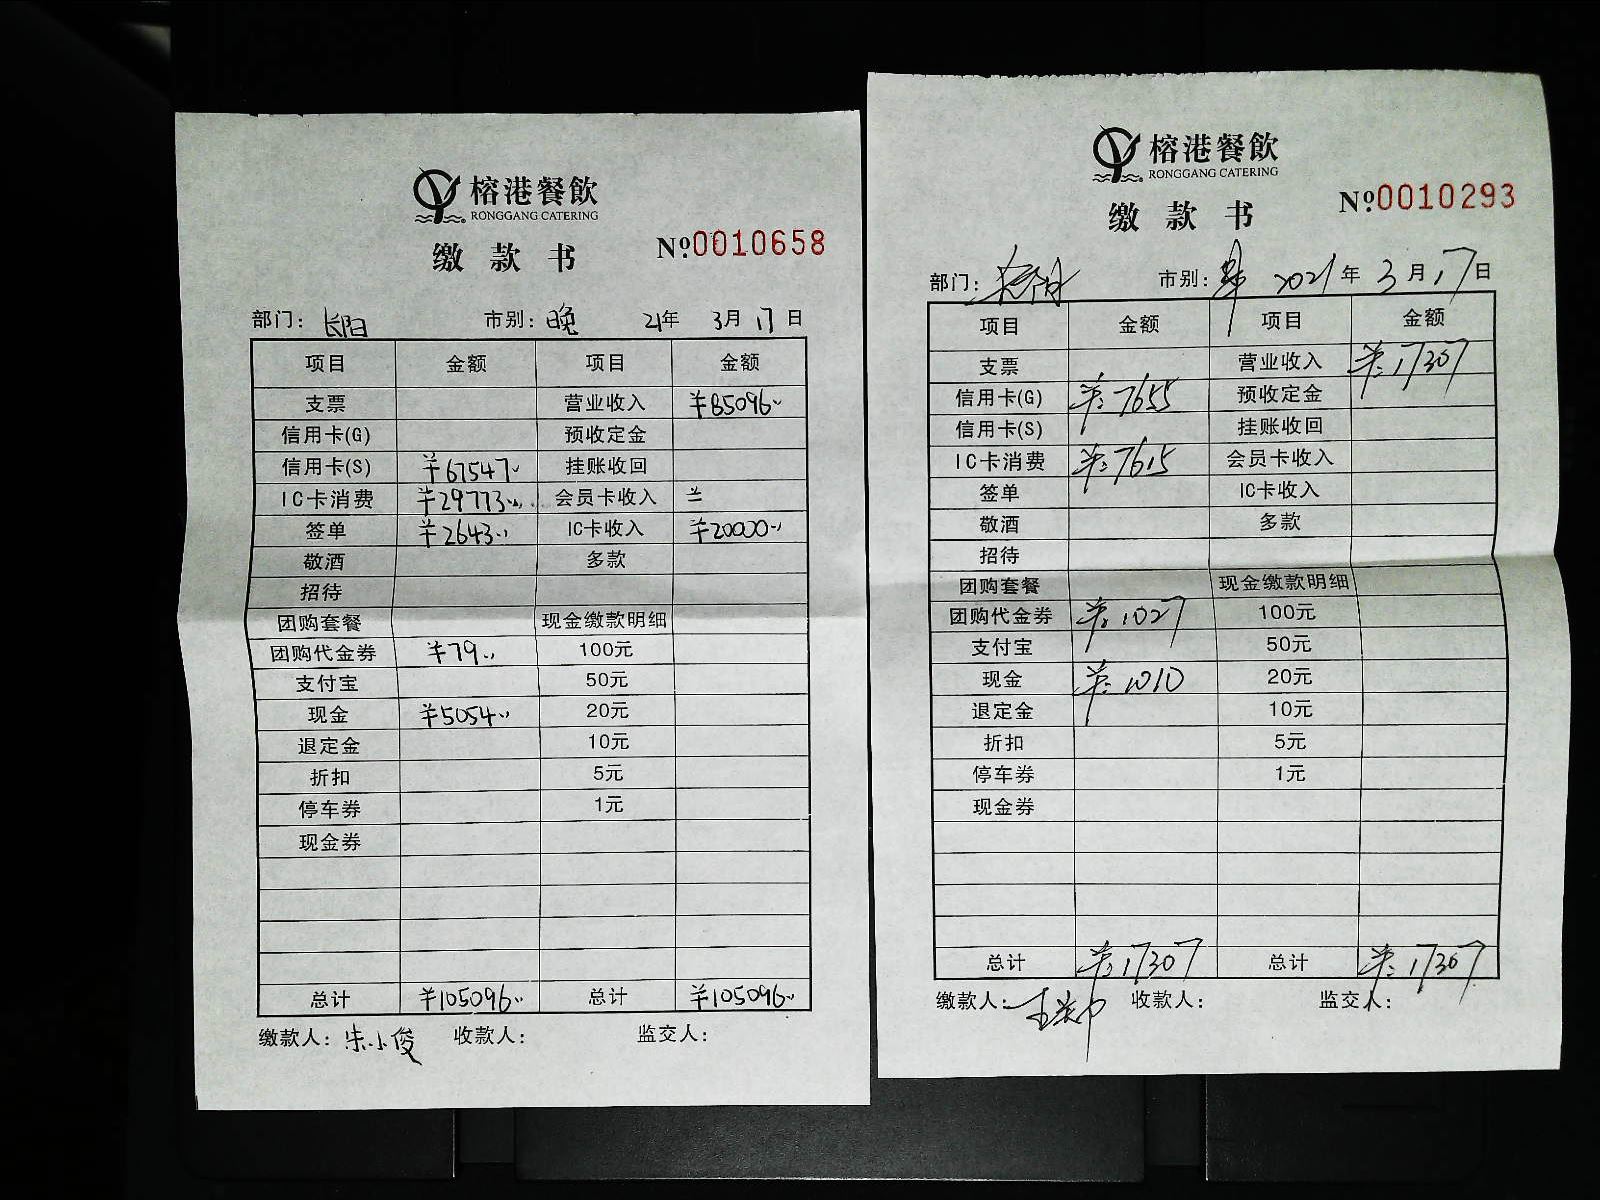 榕港餐飲
RONGGANG CATERING
缴款书 №0010658
部门：长阳 市别：晚 21年 3月 17日
项目 金额 项目 金额
支票 营业收入 ¥85096
信用卡(G) 预收定金
信用卡(S) ¥67547 挂账收回
IC卡消费 ¥29773 会员卡收入
签单 ¥2643 IC卡收入 ¥20000
敬酒 多款
招待
团购套餐 现金缴款明细
团购代金券 ¥79 100元
支付宝 50元
现金 ¥5054 20元
退定金 10元
折扣 5元
停车券 1元
现金券
总计 ¥105096 总计 ¥105096
缴款人：朱小俊 收款人： 监交人：
榕港餐飲
RONGGANG CATERING
缴款书 №0010293
部门：长阳 市别： 2021年 3月17日
项目 金额 项目 金额
支票 营业收入 ¥:17307
信用卡(G) ¥:7655 预收定金
信用卡(S) 挂账收回
IC卡消费 ¥:7615 会员卡收入
签单 IC卡收入
敬酒 多款
招待
团购套餐 现金缴款明细
团购代金券 ¥:1027 100元
支付宝 50元
现金 ¥:1010 20元
退定金 10元
折扣 5元
停车券 1元
现金券
总计 ¥:17307 总计 ¥:17307
缴款人： 收款人： 监交人：